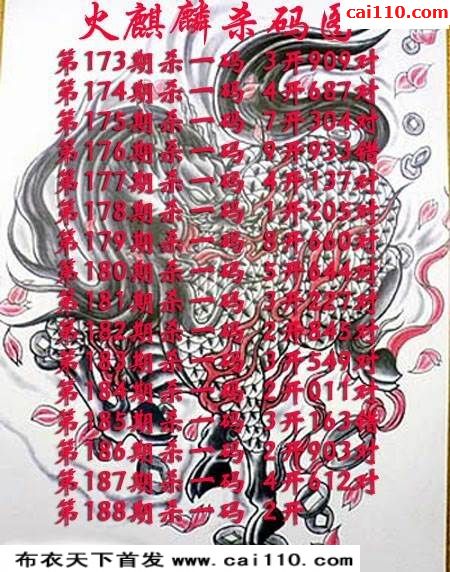 cai110.com
火麒麟杀码图
第173期杀一码 3开909对
第174期杀一码 4开687对
第175期杀一码 7开304对
第176期杀一码 9开933错
第177期杀一码 4开137对
第178期杀一码 1开205对
第179期杀一码 8开660对
第180期杀一码 5开644对
第181期杀一码 3开227对
第182期杀一码 2开845对
第183期杀一码 3开549对
第184期杀一码 2开011对
第185期杀一码 3开163错
第186期杀一码 2开903对
第187期杀一码 4开612对
第188期杀一码 2开
布衣天下首发 www.cai110.com